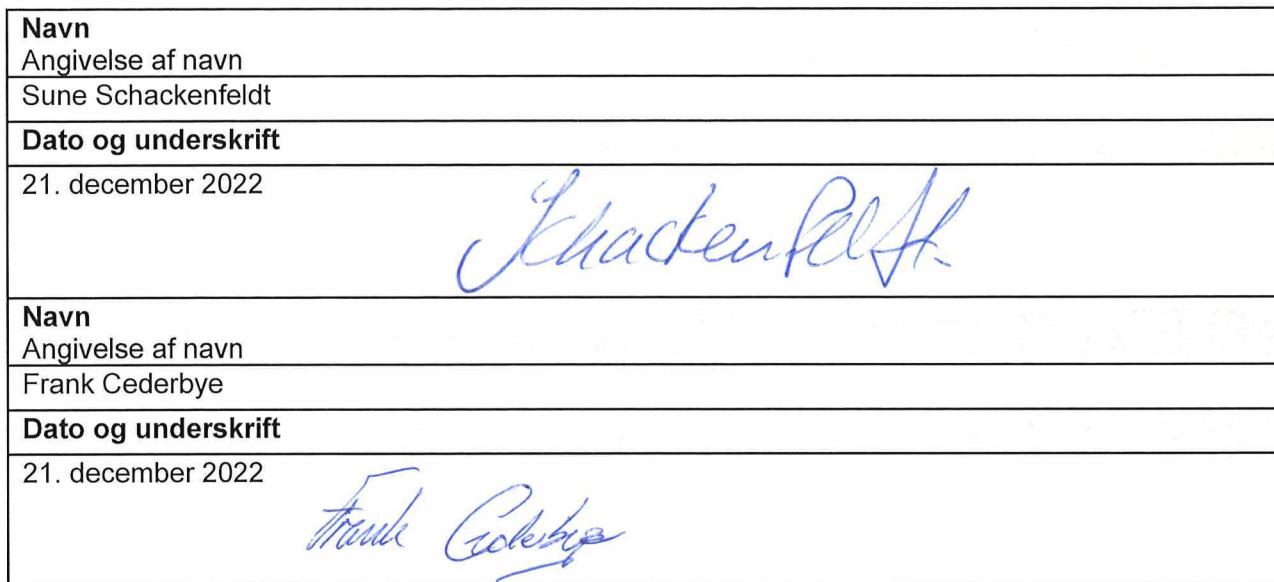 Navn
Angivelse af navn
Sune Schackenfeldt
Dato og underskrift
21. december 2022
Schackenfeldt
Navn
Angivelse af navn
Frank Cederbye
Dato og underskrift
21. december 2022
Frank Cederbye